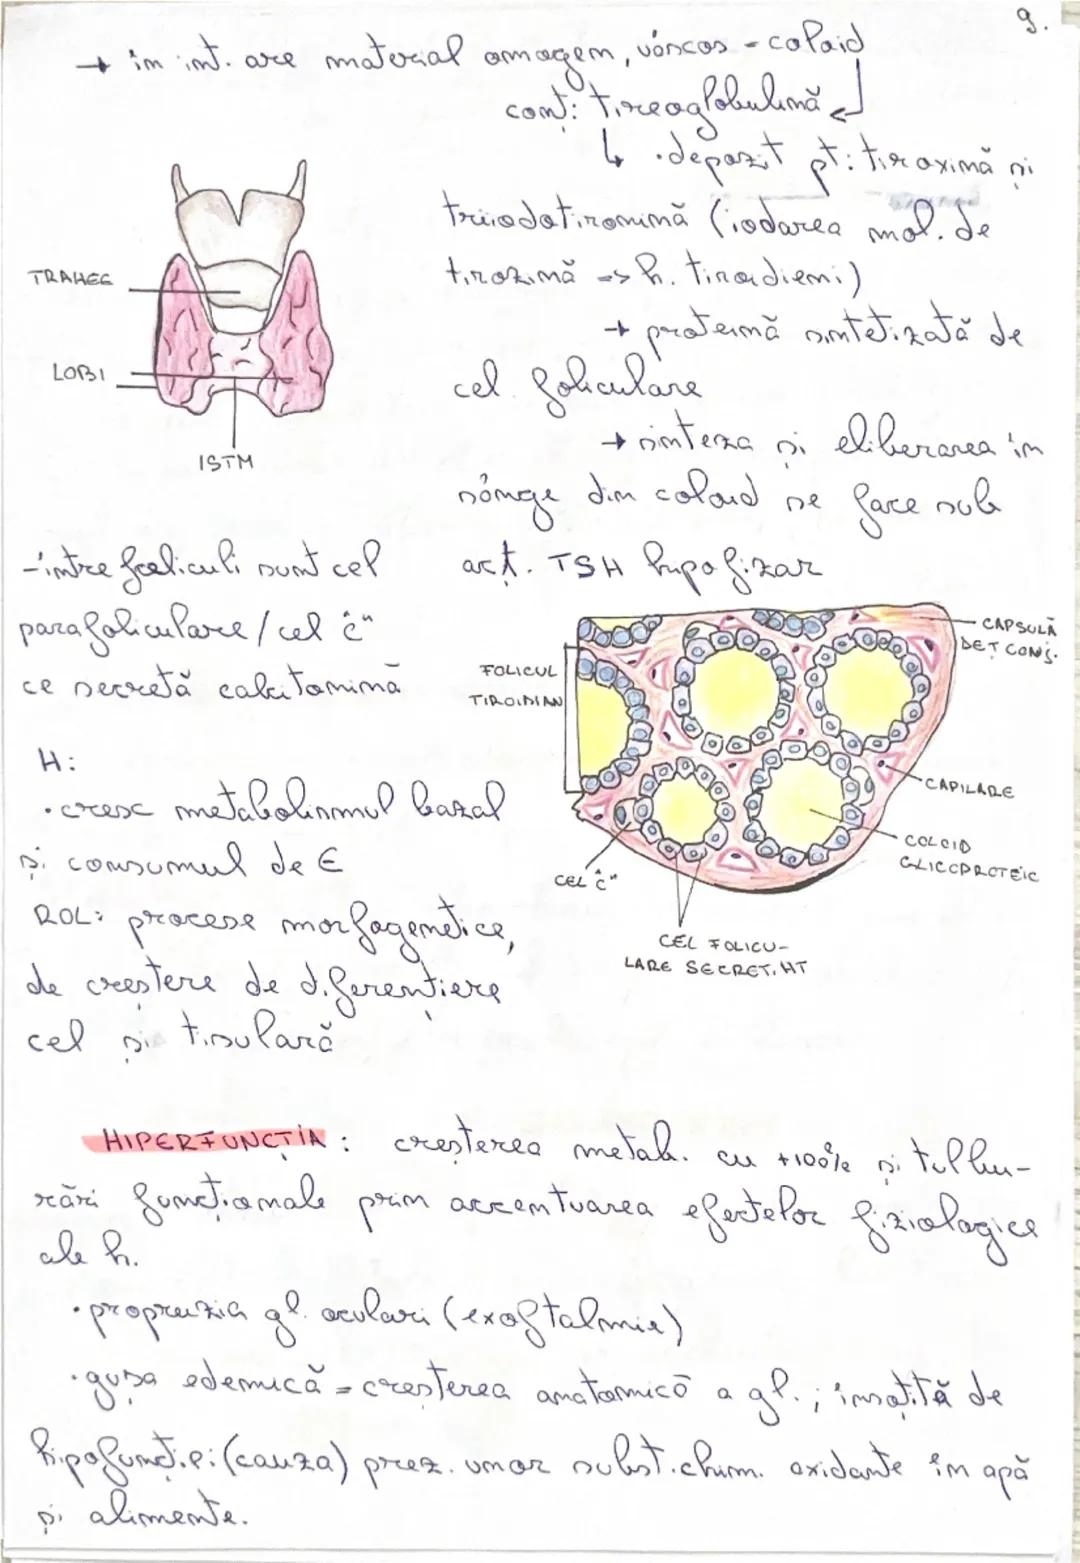 9.
→ în int. are material omogen, vâscos - coloid
conț: tireoglobulină
↳ •depozit pt: tiroxină și
TRAHEE
triiodotironină (iodarea mol. de
tirozină => h. tiroidieni)
→ proteină sintetizată de
LOBI
cel. foliculare
→ sinteza și eliberarea în
ISTM
sânge din coloid se face sub
acț. TSH hipofizar
- între foliculi sunt cel
parafoliculare / cel "c"
ce secretă calcitonină
CAPSULĂ
DE Ț CONJ.
FOLICUL
TIROIDIAN
H:
• cresc metabolismul bazal
și consumul de E
CAPILARE
COLOID
GLICOPROTEIC
CEL "C"
ROL: procese morfogenetice,
de creștere de diferențiere
cel și tisulară
CEL FOLICU-
LARE SECRET. HT
HIPERFUNCȚIA: creșterea metab. cu +100% și tulbu-
rări funcționale prin accentuarea efectelor fiziologice
ale h.
• propruzia gl. oculari (exoftalmie)
• gușa edemică = creșterea anatomică a gl.; însoțită de
hipofuncție: (cauza) prez. unor subst. chim. oxidante în apă
și alimente.